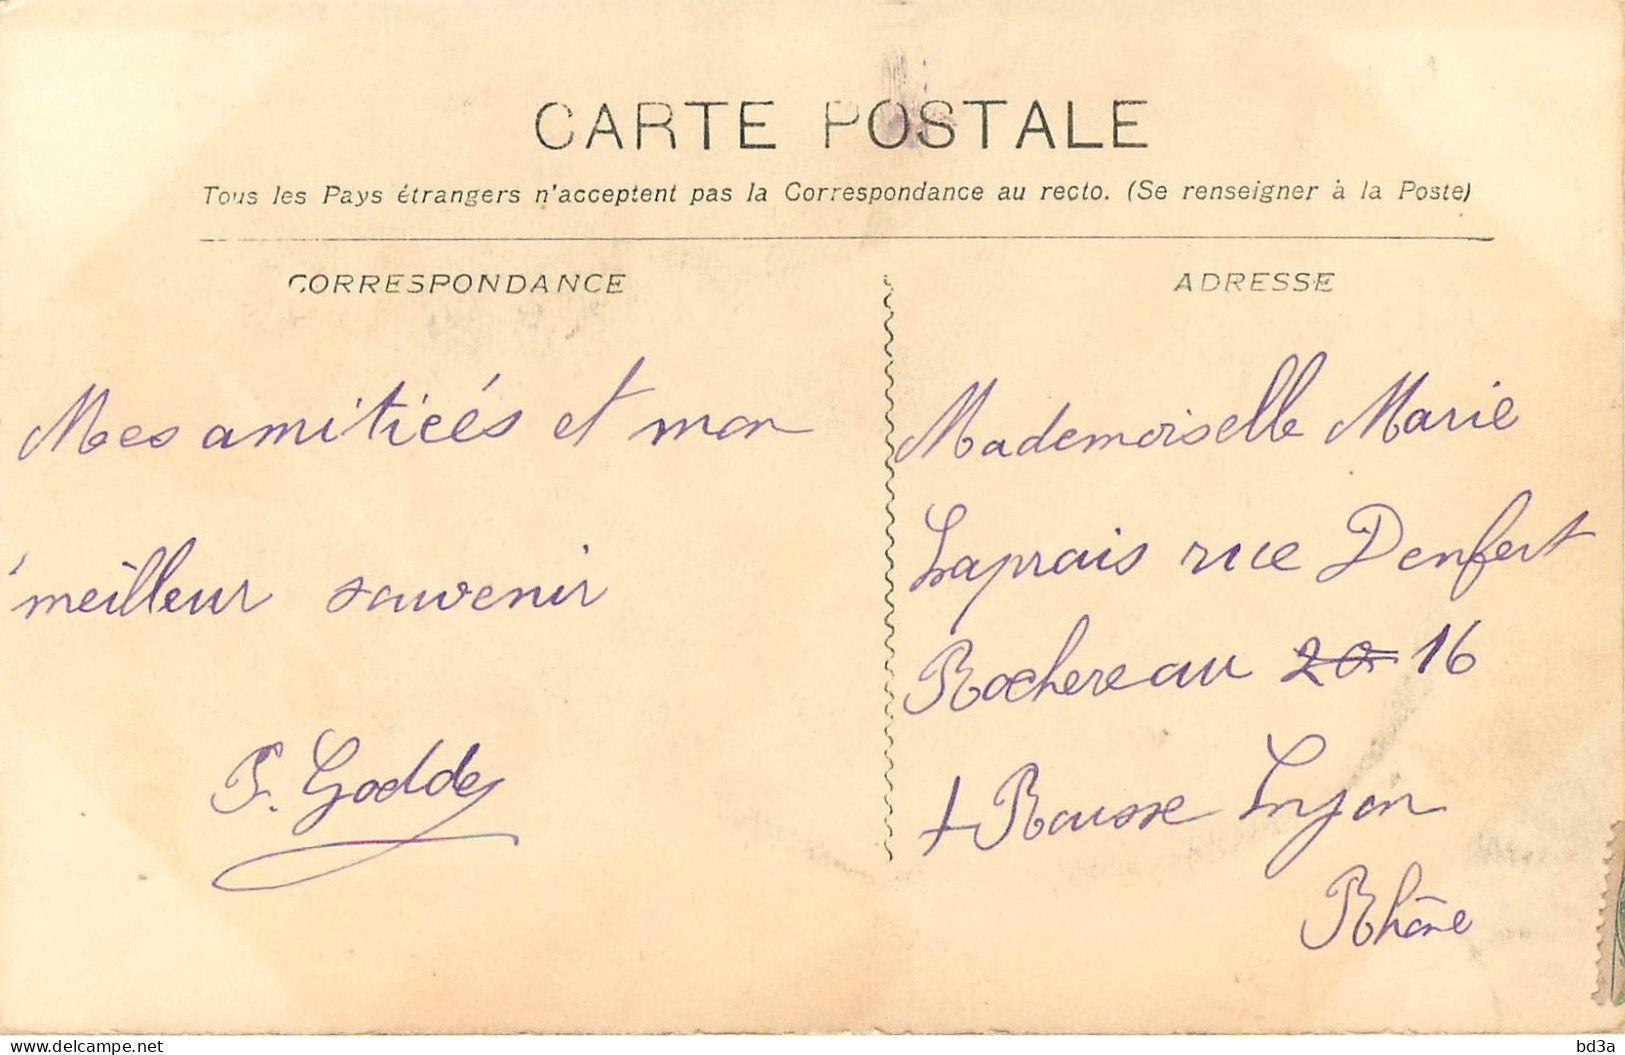 CARTE POSTALE
Tous les Pays étrangers n'acceptent pas la Correspondance au recto. (Se renseigner à la Poste)
CORRESPONDANCE
Mes amiticés et mon
meilleur souvenir
P. Godde
ADRESSE
Mademoiselle Marie
Laprais rue Denfert
Rochereau 20 16
+ Rousse Lyon
Rhône
delcampe.net
bd3a